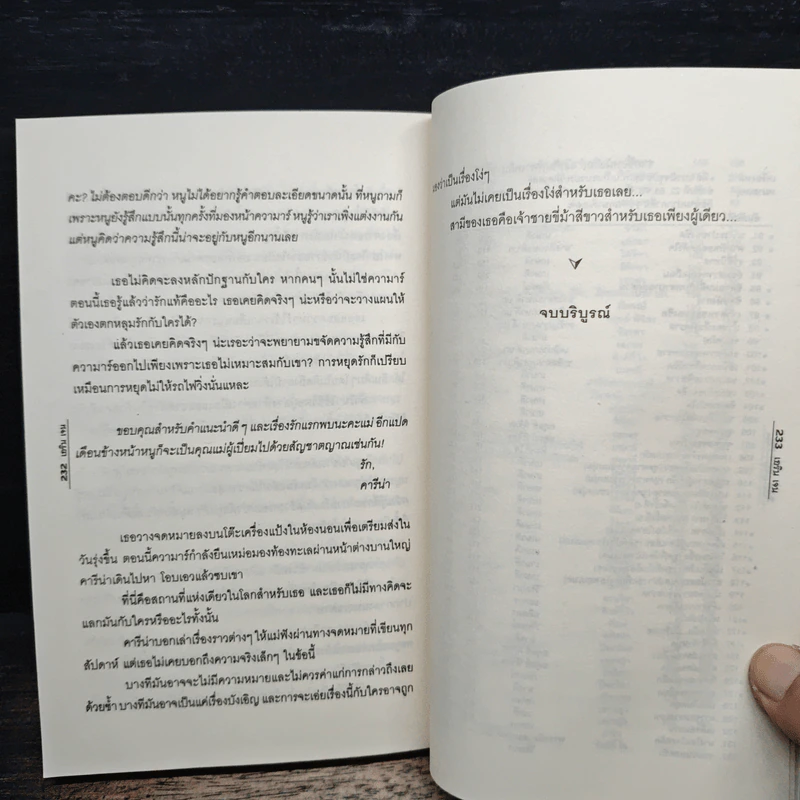 คะ? ไม่ต้องตอบดีกว่า หนูไม่ได้อยากรู้คำตอบละเอียดขนาดนั้น ที่หนูถามก็
เพราะหนูยังรู้สึกแบบนั้นทุกครั้งที่มองหน้าความาร์ หนูรู้ว่าเราเพิ่งแต่งงานกัน
แต่หนูคิดว่าความรู้สึกนี้น่าจะอยู่กับหนูอีกนานเลย
เธอไม่คิดจะลงหลักปักฐานกับใคร หากคนๆ นั้นไม่ใช่ความาร์
ตอนนี้เธอรู้แล้วว่ารักแท้คืออะไร เธอเคยคิดจริงๆ น่ะหรือว่าจะวางแผนให้
ตัวเองตกหลุมรักกับใครได้?
แล้วเธอเคยคิดจริงๆ น่ะเรอะว่าจะพยายามขจัดความรู้สึกที่มีกับ
ความาร์ออกไปเพียงเพราะเธอไม่เหมาะสมกับเขา? การหยุดรักก็เปรียบ
เหมือนการหยุดไม่ให้รถไฟวิ่งนั่นแหละ
ขอบคุณสำหรับคำแนะนำดีๆ และเรื่องรักแรกพบนะคะแม่ อีกแปด
เดือนข้างหน้าหนูก็จะเป็นคุณแม่ผู้เปี่ยมไปด้วยสัญชาตญาณเช่นกัน!
รัก,
คารีน่า
เธอวางจดหมายลงบนโต๊ะเครื่องแป้งในห้องนอนเพื่อเตรียมส่งใน
วันรุ่งขึ้น ตอนนี้ความาร์กำลังยืนเหม่อมองท้องทะเลผ่านหน้าต่างบานใหญ่
คารีน่าเดินไปหา โอบเอวแล้วซบเขา
ที่นี่คือสถานที่แห่งเดียวในโลกสำหรับเธอ และเธอก็ไม่มีทางคิดจะ
แลกมันกับใครหรืออะไรทั้งนั้น
คารีน่าบอกเล่าเรื่องราวต่างๆ ให้แม่ฟังผ่านทางจดหมายที่เขียนทุก
สัปดาห์ แต่เธอไม่เคยบอกถึงความจริงเล็กๆ ในข้อนี้
บางทีมันอาจจะไม่มีความหมายและไม่ควรค่าแก่การกล่าวถึงเลย
ด้วยซ้ำ บางทีมันอาจเป็นแค่เรื่องบังเอิญ และการจะเอ่ยเรื่องนี้กับใครอาจถูก
232
มองว่าเป็นเรื่องโง่ๆ
แต่มันไม่เคยเป็นเรื่องโง่สำหรับเธอเลย...
สามีของเธอคือเจ้าชายขี่ม้าสีขาวสำหรับเธอเพียงผู้เดียว...
จบบริบูรณ์
233